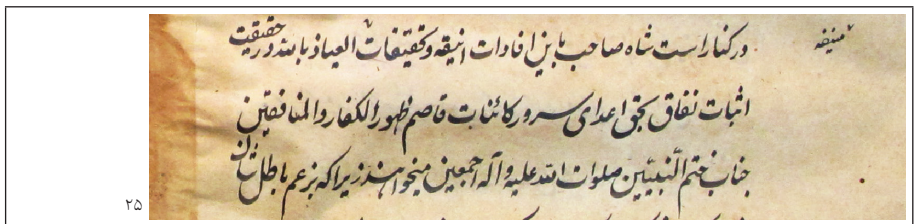 در کنار است شاه صاحب باین افادات انیقه و تحقیقات العیاذ بالله در حقیقت
منیفه
اثبات نفاق بحق اعدای سرور کائنات قاصم ظهور الکفار والمنافقین
جناب ختم النبیین صلوات الله علیه وآله اجمعین میخواهند زیرا که بزعم باطل شان
۲۵